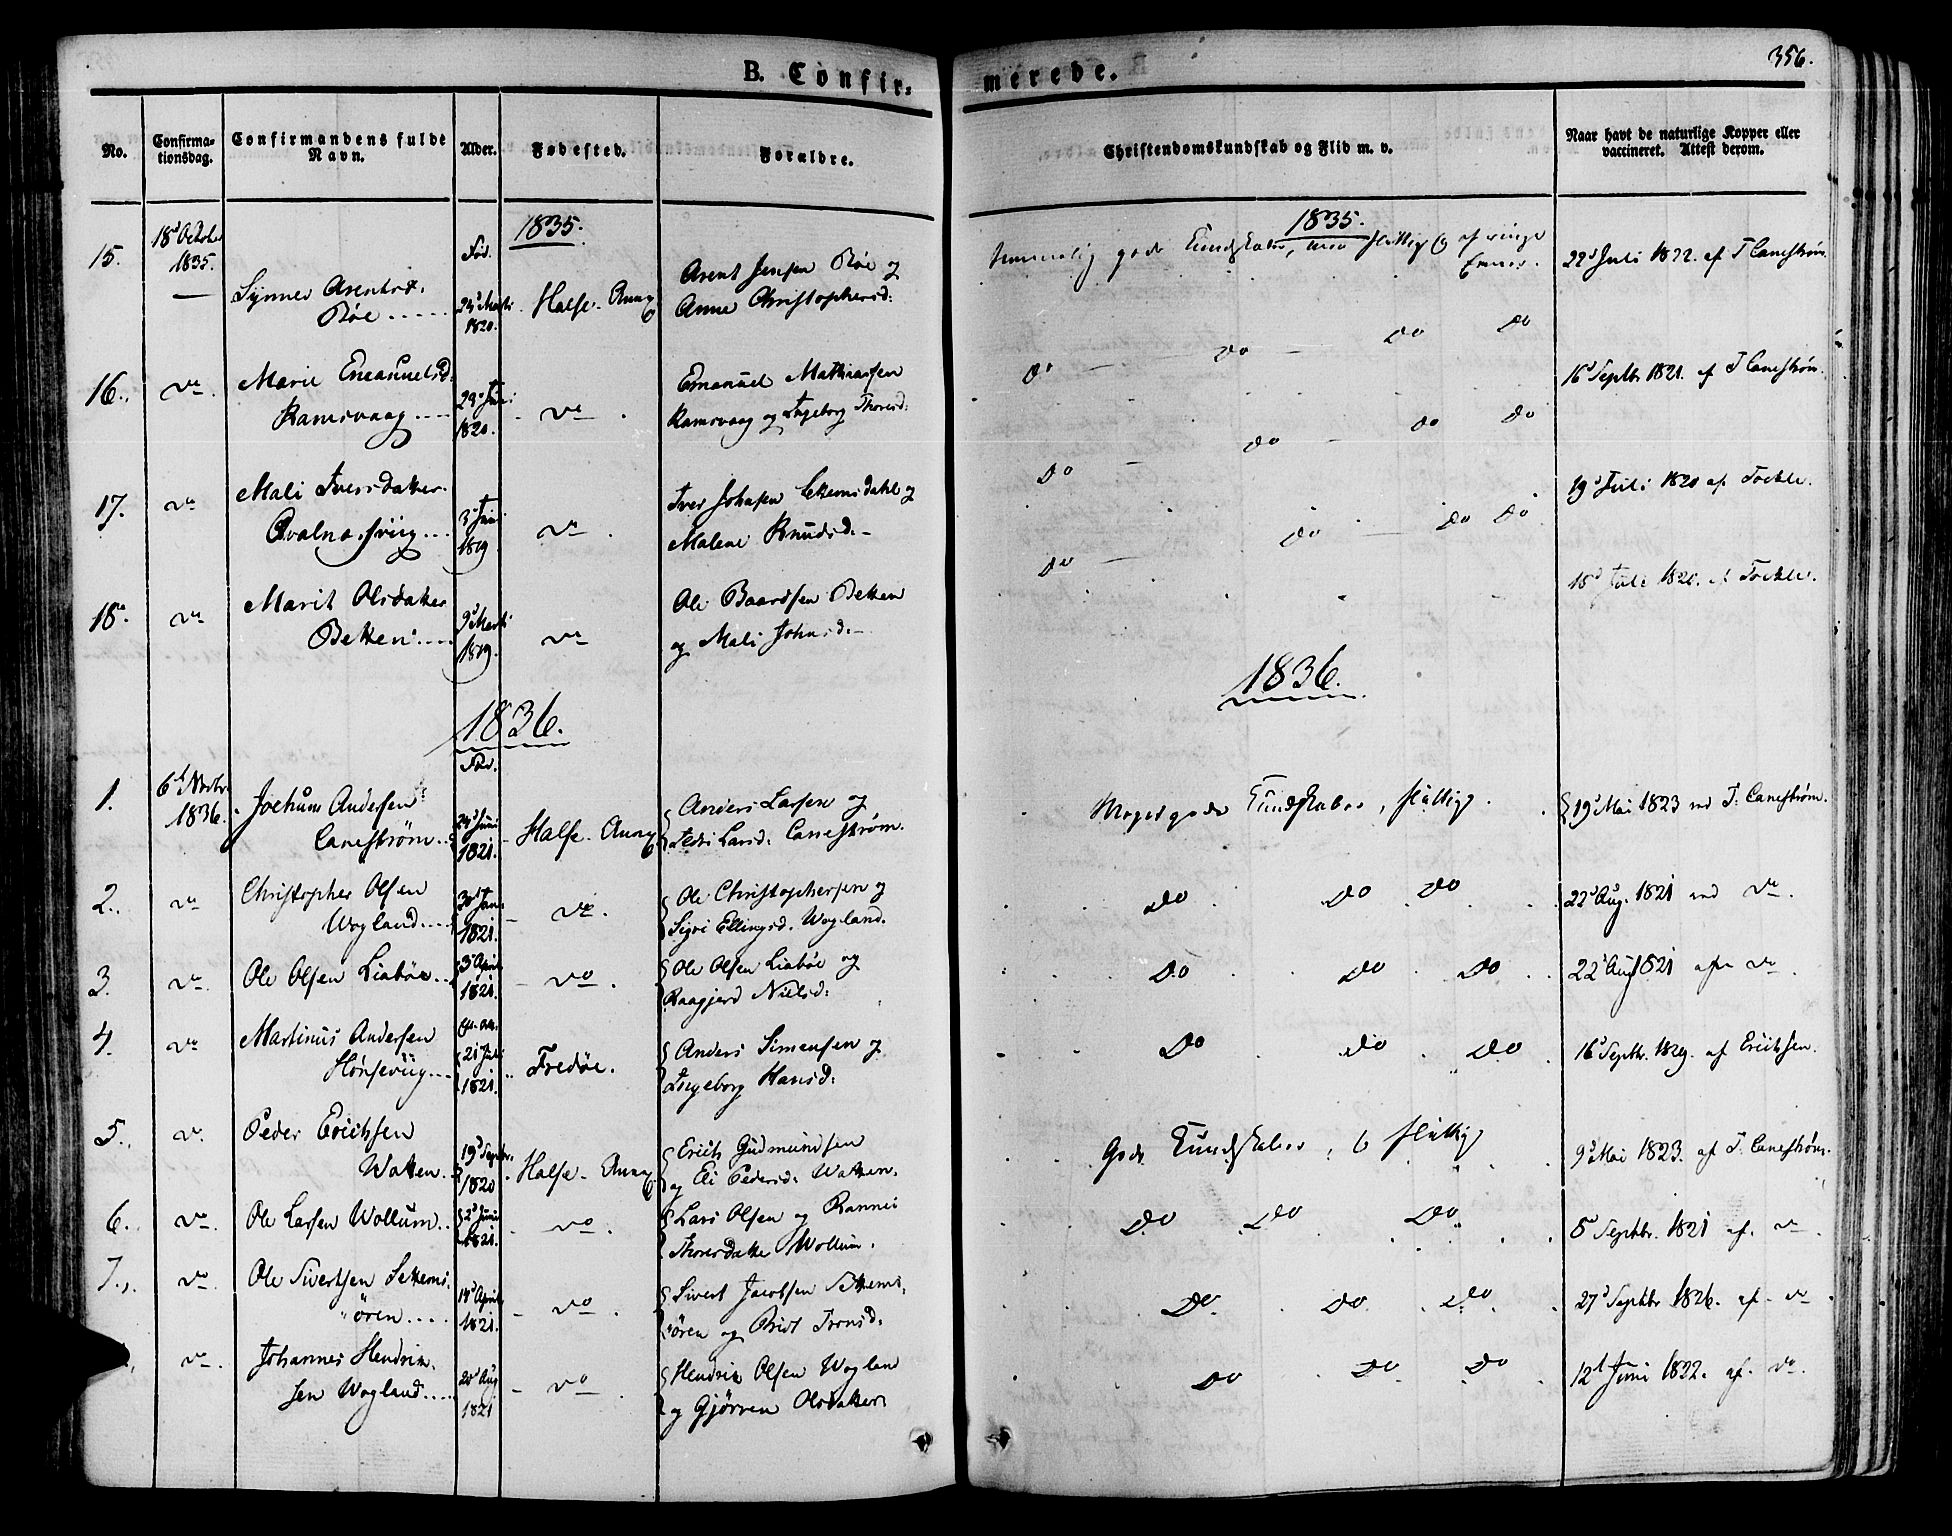 356.
B. Confir-
merede.
No.
Confirma-
tionsdag.
Confirmandens fulde
Navn.
Alder.
Fødested.
Forældre.
Christendomskundskab og Flid m. v.
Naar havt de naturlige Kopper eller
vaccineret. Attest derom.
1835.
1835.
15.
18d Octobr
1835.
Fød.
Synnev Arentsd:
Røe
24d Marti
1820.
Halse. Annex
Arent Jensen Røe og
Anne Christophersd:
temmelig gode Kundskaber,
flittig
22d Juli 1822. af T Canestrøm.
16.
do
Marie Emanuelsd:
Ramsvaag
29d Juni
1820.
do
Emanuel Mathiassen
Ramsvaag og Ingeborg Thoresd:
do do do do
16d Septbr 1821. af T Canestrøm.
17.
do
Mali Iversdatter
3d Juni
1819
do
Iver Johnsen
og
Malene Knudsd.
do do do do
19d Juli 1820 af Tockle.
18.
do
Marit Olsdatter
Betten
9d Marti
1819.
do
Ole Baardsen Betten
og Mali Johnsd.
do do do do
18d Juli 1820. af Tockle.
1836.
1836.
1.
6d Novbr
1836.
Fød.
Jochum Andersen
Canestrøm
24d Juni
1821.
Halse. Annex
Anders Larsen og
Larsd: Canestrøm.
Meget gode Kundskaber, flittig.
19d Mai 1823 ved T. Canestrøm.
2.
do
Christopher Olsen
Wogland
30d Jan:
1821.
do
Ole Christophersen og
Sigri Ellingsd. Wogland.
do do do
22d Aug. 1821 ved do.
3.
do
Ole Olsen Liabøe
3d April
1821.
do
Ole Olsen Liabøe og
Raagjerd Nielsd:
do do do
22d Aug 1821 af do
4.
do
Martinus Andersen
Hønseviig
21d Juli
1821.
Fredøe.
Anders Simensen og
Ingeborg Hansd:
do do do
16d Septbr. 1829. af Erichsen.
5.
do
Peder Erichsen
Watten
19d Septbr.
1820
Halse. Annex
Erich Gudmundsen
og Eli Pedersd: Watten.
Gode Kundskaber, flittig
9d Mai 1823. af T. Canestrøm.
6.
do
Ole Larsen Wollum
2d Juni
1821.
do
Lars Olsen og Rannei
Thoresdatter Wollum.
do do do
8d Septbr. 1821 af. do
7.
do
Ole Sivertsen Settems-
øren
18d April
1821.
do
Sivert Jacobsen Settems-
øren og Brit Tronsd:
do do do
27d Septbr 1826. af. do
do
Johannes Hendrik-
sen Wogland
20d Aug
1821
do
Hendrik Olsen Woglan
og Gjørren Olsdatter
do do do
12d Juni 1822. af. do.